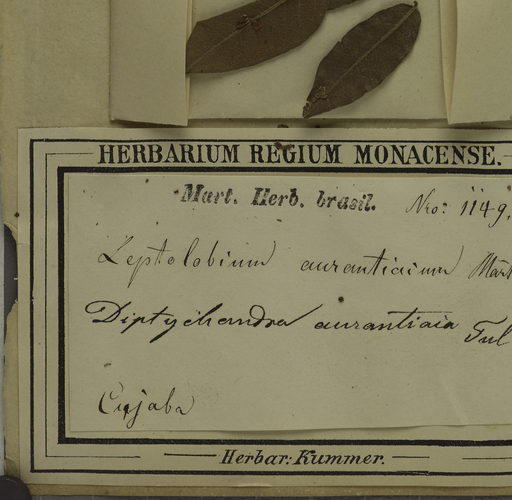 HERBARIUM REGIUM MONACENSE.
Mart. Herb. brasil. Nro: 1149.
Leptolobium aurantiacum Mart
Diptychandra aurantiaca Tul
Cujaba
Herbar: Kummer.